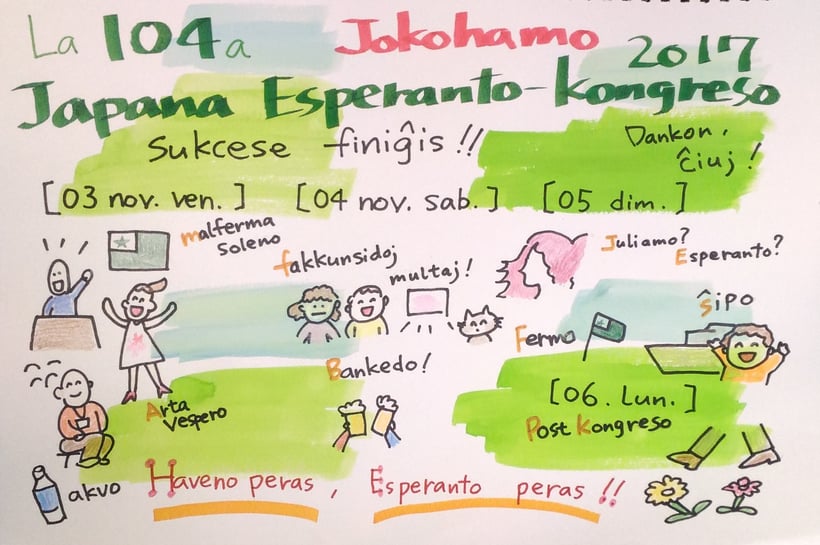 La 104a Jokohamo 2017
Japana Esperanto-kongreso
Sukcese finiĝis !!
Dankon,
ĉiuj !
[03 nov. ven. ] [04 nov. sab. ] [05 dim. ]
malferma
soleno
fakkunsidoj
multaj !
Juliamo?
Esperanto?
ŝipo
Fermo
Bankedo !
[06. Lun. ]
Post Kongreso
Arta
Vespero
akvo
Haveno peras , Esperanto peras !!